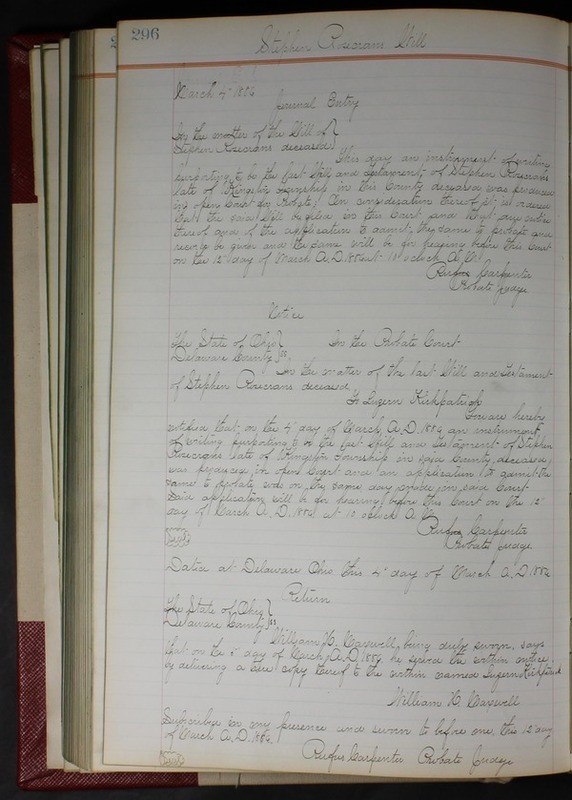 296
Stephen Rosecrans Will
March 4" 1886
Journal Entry
In the matter of the Will of
Stephen Rosecrans deceased
This day an instrument of writing
purporting to be the last Will and testament of Stephen Rosecrans
late of Kingston Township in this County deceased was produced
in open Court for Probate. On consideration thereof it is ordered
that the said Will be filed in this Court and that due notice
thereof and of the application to admit the same to probate and
record be given and the same will be for hearing before this Court
on the 12" day of March A.D. 1886 at 10 oclock A.M.
Rufus Carpenter
Probate Judge
Notice
The State of Ohio
Delaware County ss. In the Probate Court
In the matter of the last Will and Testament
of Stephen Rosecrans deceased
To Luzern Kirkpatrick
You are hereby
notified that on the 4" day of March A.D. 1886 an instrument
of writing purporting to be the last Will and Testament of Stephen
Rosecrans late of Kingston Township in said County deceased
was produced in open Court and an application to admit the
same to probate was on the same day made in said Court
Said application will be for hearing before this Court on the 12"
day of March A.D. 1886 at 10 oclock A.M.
Rufus Carpenter
Probate Judge
Seal
Dated at Delaware Ohio this 4" day of March A.D. 1886
Return
The State of Ohio
Delaware County ss.
William H. Maxwell being duly sworn, says
that on the day of March A.D. 1886 he served the within notice
by delivering a true copy thereof to the within named Luzern Kirkpatrick
William H. Maxwell
Subscribed in my presence and sworn to before me, this 12" day
of March A.D. 1886.
Seal
Rufus Carpenter Probate Judge